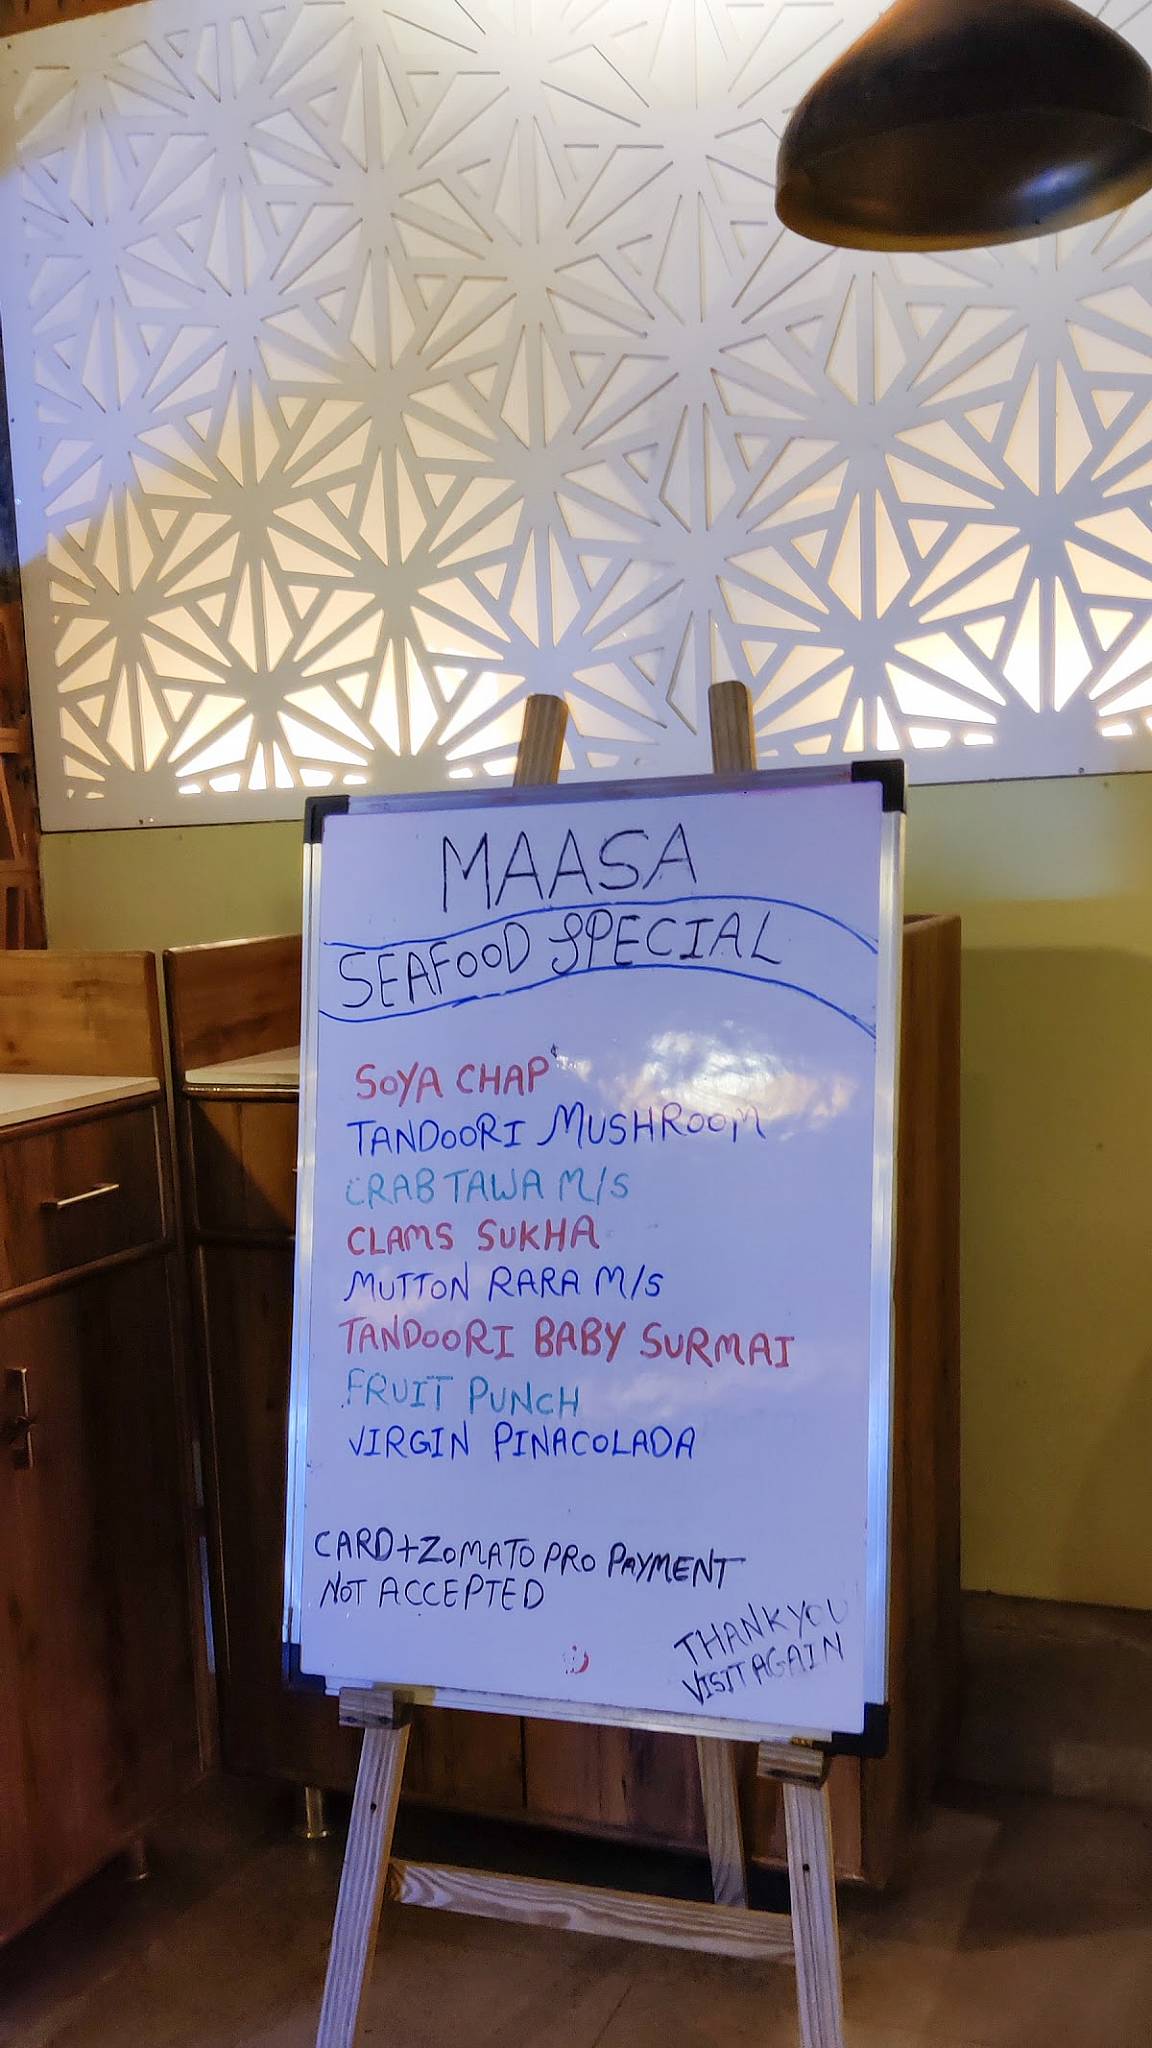 MAASA
SEAFOOD SPECIAL
SOYA CHAP
TANDOORI MUSHROOM
CRAB TAWA M/S
CLAMS SUKHA
MUTTON RARA M/S
TANDOORI BABY SURMAI
FRUIT PUNCH
VIRGIN PINACOLADA
CARD+ZOMATO PRO PAYMENT
NOT ACCEPTED
THANK YOU
VISIT AGAIN